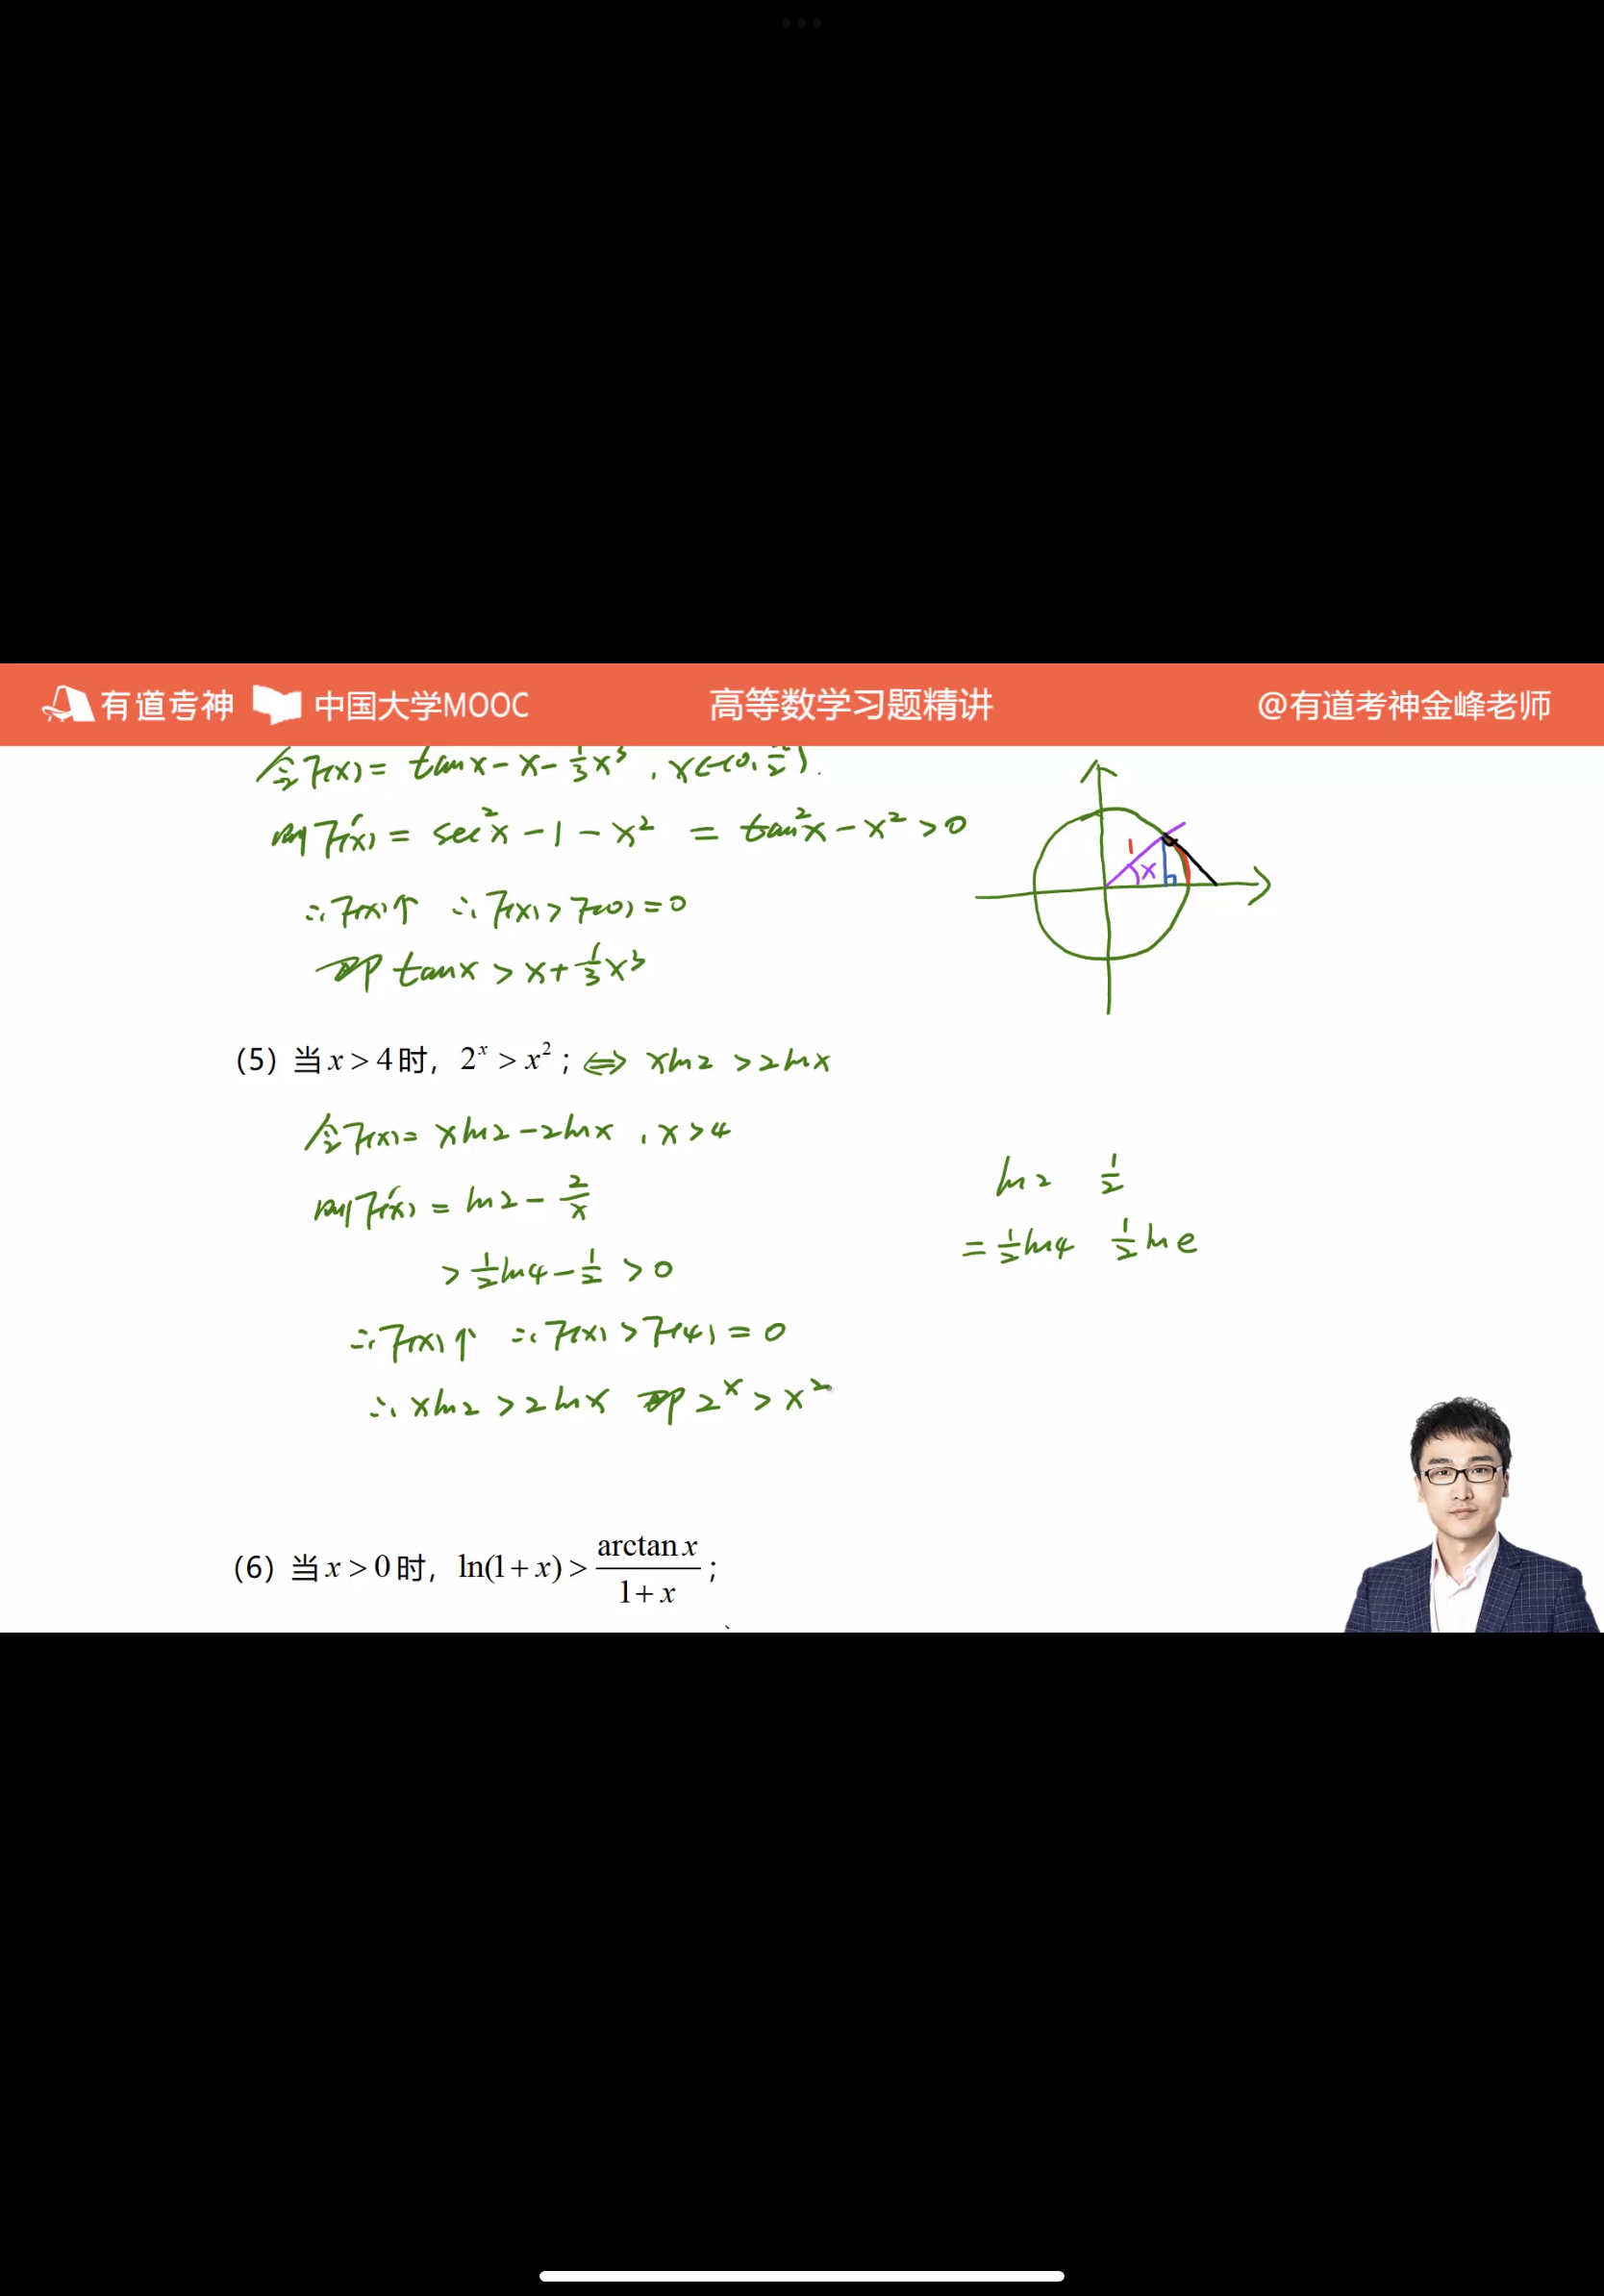 有道考神 中国大学MOOC 高等数学习题精讲 @有道考神金峰老师
令F(x) = tanx - x - 1/3 x³ , x∈(0, π/2).
则F'(x) = sec²x - 1 - x² = tan²x - x² > 0
∴F(x)↑ ∴F(x) > F(0) = 0
即 tanx > x + 1/3 x³
1 x
(5) 当 x > 4 时, 2ˣ > x² ; ⇔ xln2 > 2lnx
令F(x) = xln2 - 2lnx , x > 4
则F'(x) = ln2 - 2/x
> 1/2 ln4 - 1/2 > 0
ln2 1/2
= 1/2 ln4 1/2 ln e
∴F(x)↑ ∴F(x) > F(4) = 0
∴xln2 > 2lnx 即 2ˣ > x²
(6) 当 x > 0 时, ln(1+x) > arctan x / 1+x ;